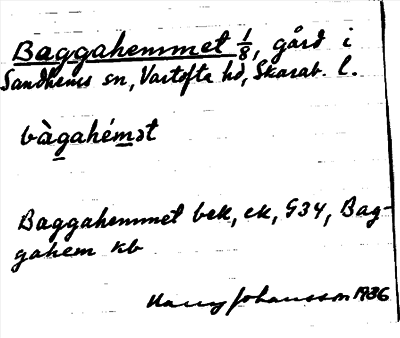 Baggahemmet 1/8, gård i
Sandhems sn, Vartofta hd, Skarab. l.
bàgahémət
Baggahemmet bek, ek, G34, Bag-
gahem kb
Harry Johansson 1936